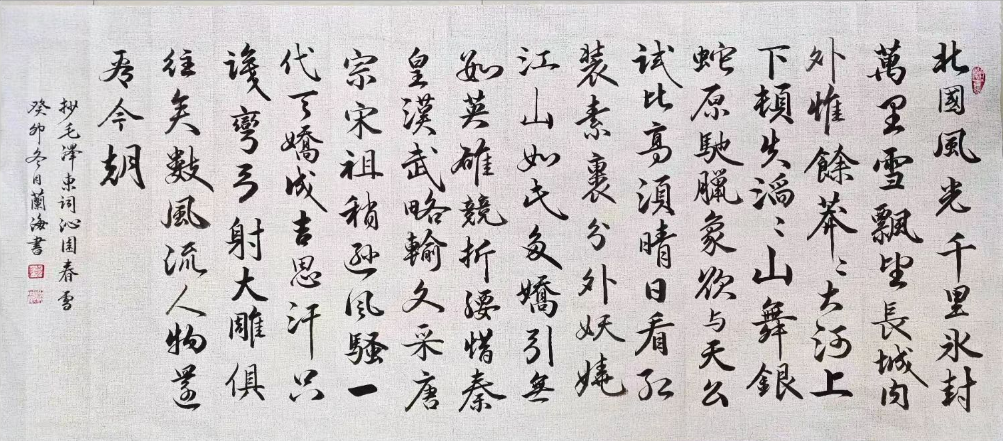 北國風光千里氷封
萬里雪飄望長城内
外惟餘莽〻大河上
下頓失滔〻山舞銀
蛇原馳臘象欲与天公
試比高須晴日看紅
裝素裹分外妖嬈
江山如此多嬌引無
數英雄競折腰惜秦
皇漢武略輸文采唐
宗宋祖稍遜風騷一
代天嬌成吉思汗只
識彎弓射大雕俱
往矣數風流人物還
看今朝
抄毛澤東词沁園春雪
癸卯冬月蘭海書